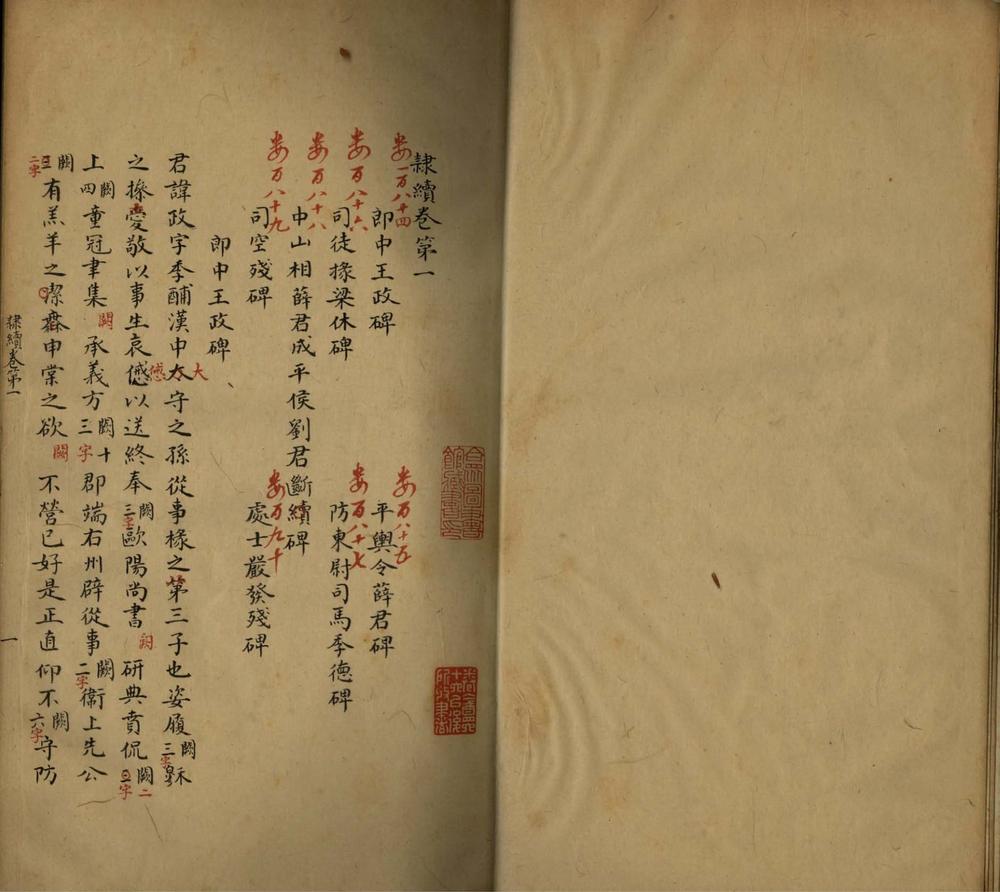 隸續卷第一
郎中王政碑　平輿令薛君碑
婁一万八十四　婁万八十五
司徒掾梁休碑　防東尉司馬季德碑
婁万八十六　婁万八十七
中山相薛君成平侯劉君斷續碑
婁万八十八
司空殘碑　處士嚴發殘碑
婁万八十九　婁万九十
郎中王政碑
君諱政字季酺漢中太守之孫從事椽之第三子也姿履闕三字穌
大
之操愛敬以事生哀慽以送終奉闕三字歐陽尚書闕研典賁侃闕二字
上四闕童冠聿集闕承義方三闕字十郡端右州辟從事闕二字衞上先公
闕二字有羔羊之潔無申棠之欲闕不營已好是正直仰不闕六字守防
隸續卷第一
一